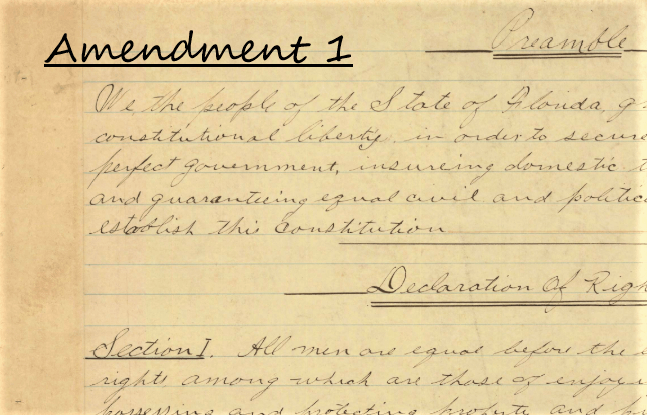 Amendment 1
Preamble
We the people of the State of Florida, g
constitutional liberty, in order to secure
perfect government, insureing domestic t
and guaranteeing equal civil and politic
establish this Constitution
Declaration Of Righ
Section I. All men are equal before the
rights among which are those of enjoyi
possessing and protecting property and